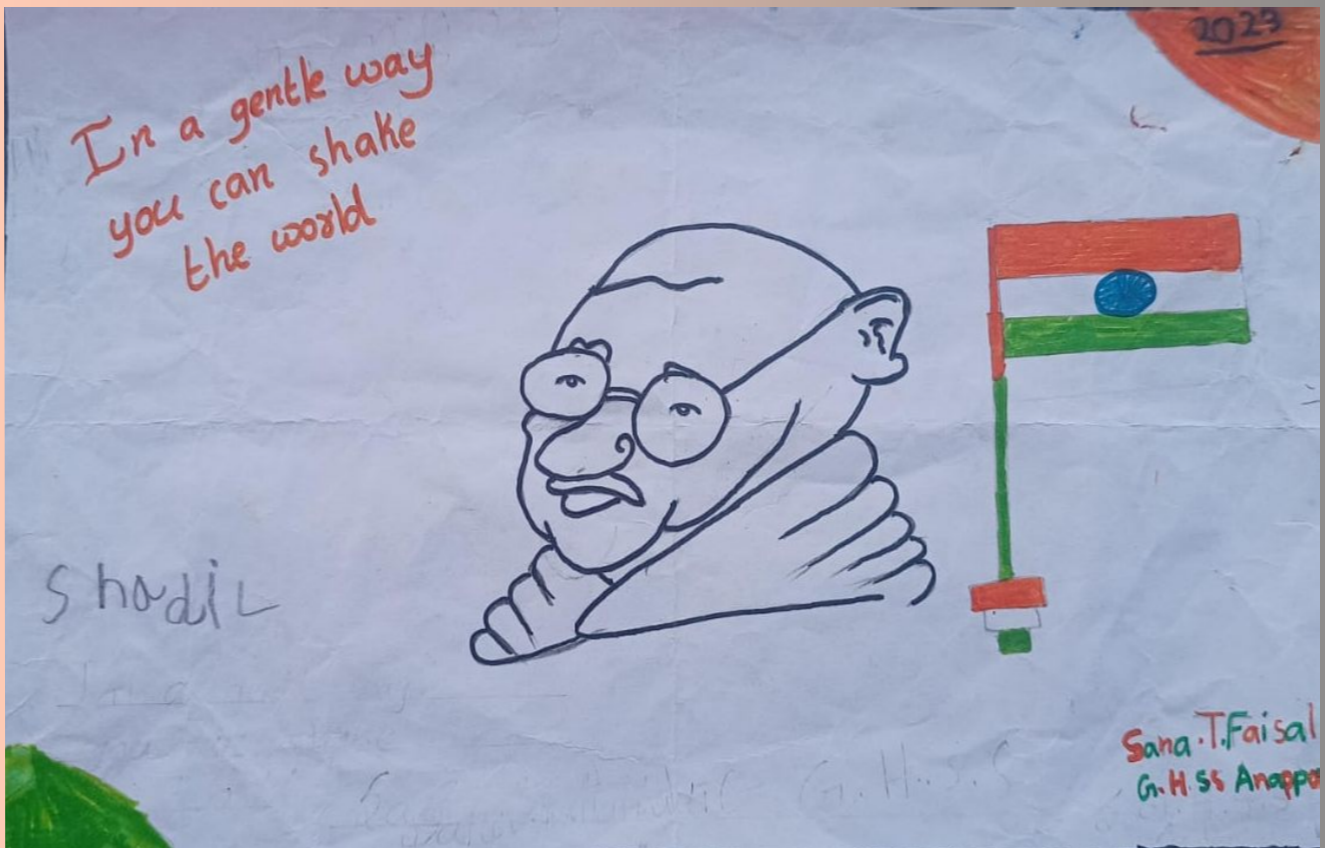 2023
In a gentle way
you can shake
the world
Shadil
Sana.T.Faisal
G.H.SS